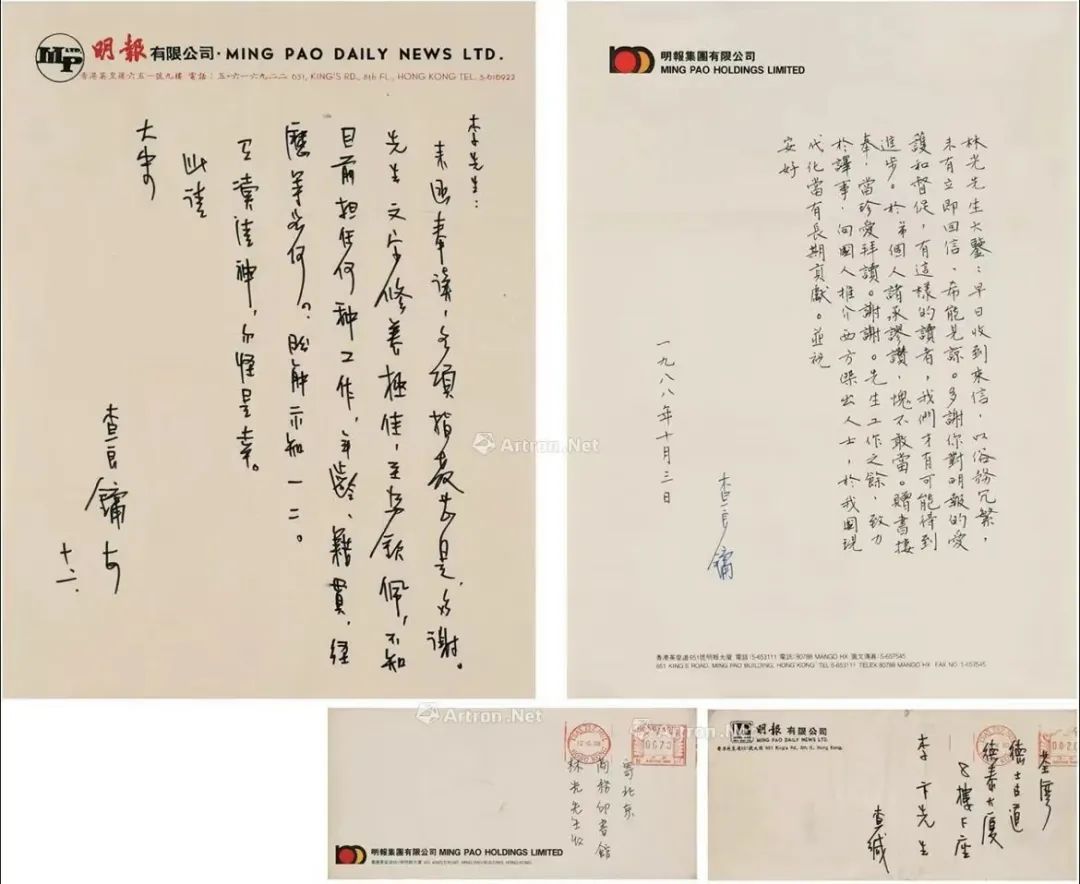 明報有限公司·MING PAO DAILY NEWS LTD.
香港英皇道六五一號九樓 電話：五·六一六九二二 651, KING'S RD., 8th FL., HONG KONG TEL. 5-616922
李先生：
來函奉讀，多項指教甚是，多謝。
先生文字修養極佳，至為欽佩，不知
目前担任何种工作，年齡、籍貫、經
歷等如何？盼能示知一二。
有瀆清神，勿怪是幸。
此請
大安
查良鏞上
十二、
明報集團有限公司
MING PAO HOLDINGS LIMITED
林光先生大鑒：早日收到來信，以俗務冗繁，
未有立即回信，希能見諒。多謝你對明報的愛
護和督促，有這樣的讀者，我們才有可能得到
進步。於弟個人諸承謬讚，愧不敢當。贈書接
奉，當珍愛拜讀。謝謝。先生工作之餘，致力
於譯事，向國人推介西方傑出人士，於我國現
代化當有長期貢獻。並祝
安好
查良鏞
一九八八年十月三日
香港英皇道651號明報大廈 電話：5-653111 電訊：80788 MANGO HX 圖文傳真：5-657545
651 KING'S ROAD, MING PAO BUILDING, HONG KONG TEL 5-653111 TELEX 80788 MANGO HX FAX NO. 5-657545
Artron.Net
寄北京
商務印書館
林光先生收
明報集團有限公司 MING PAO HOLDINGS LIMITED
Artron.Net
明報 有限公司
MING PAO DAILY NEWS LTD.
荃灣
德士古道
德泰大廈
8樓F座
李卞先生
查緘
Artron.Net